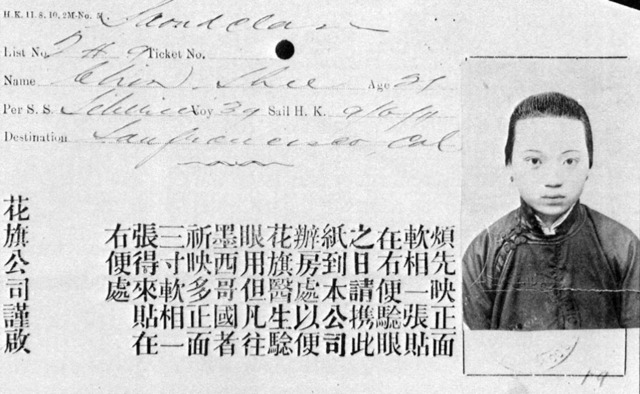 H.K. 11. 8. 10. 2M-No. 5
Second class
List No. Ticket No.
Name Chin Shee Age 21
Per S. S. Siberia Voy 39 Sail H. K. 9/6/11
Destination San Francisco, Cal
煩先映正面
軟相一張貼
在右便驗眼
之日請携此
紙到本公司
辦房處以便
花旗醫生騐
眼用但凡往
墨西哥國者
祈映多正面
三寸軟相一
張得來貼在
右便處
花旗公司謹啟
19